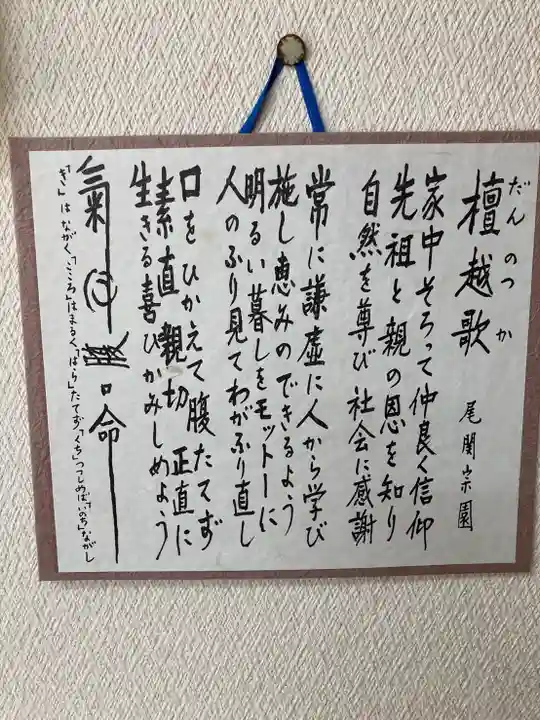 だんのつか
檀越歌
尾関宗園
家中そろって仲良く信仰
先祖と親の恩を知り
自然を尊び社会に感謝
常に謙虚に人から学び
施し恵みのできるよう
明るい暮しをモットーに
人のふり見てわがふり直し
口をひかえて腹たてず
素直親切正直に
生きる喜びかみしめよう
氣心腹口命
「き」はながく、「こころ」はまるく「はら」たてず「くち」つつしめば「いのち」ながし